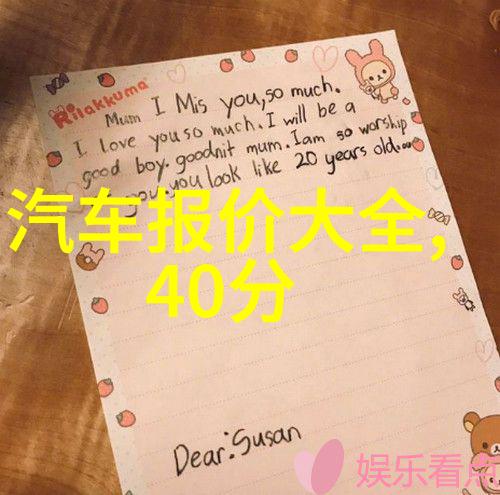 Rilakkuma
Mum I Mis you,so much.
I love you so much. I will be a
good boy. goodnit mum. I am so worship
you you look like 20 years old....
汽车报价大全,
40分
Dear:Susan
娱乐看点